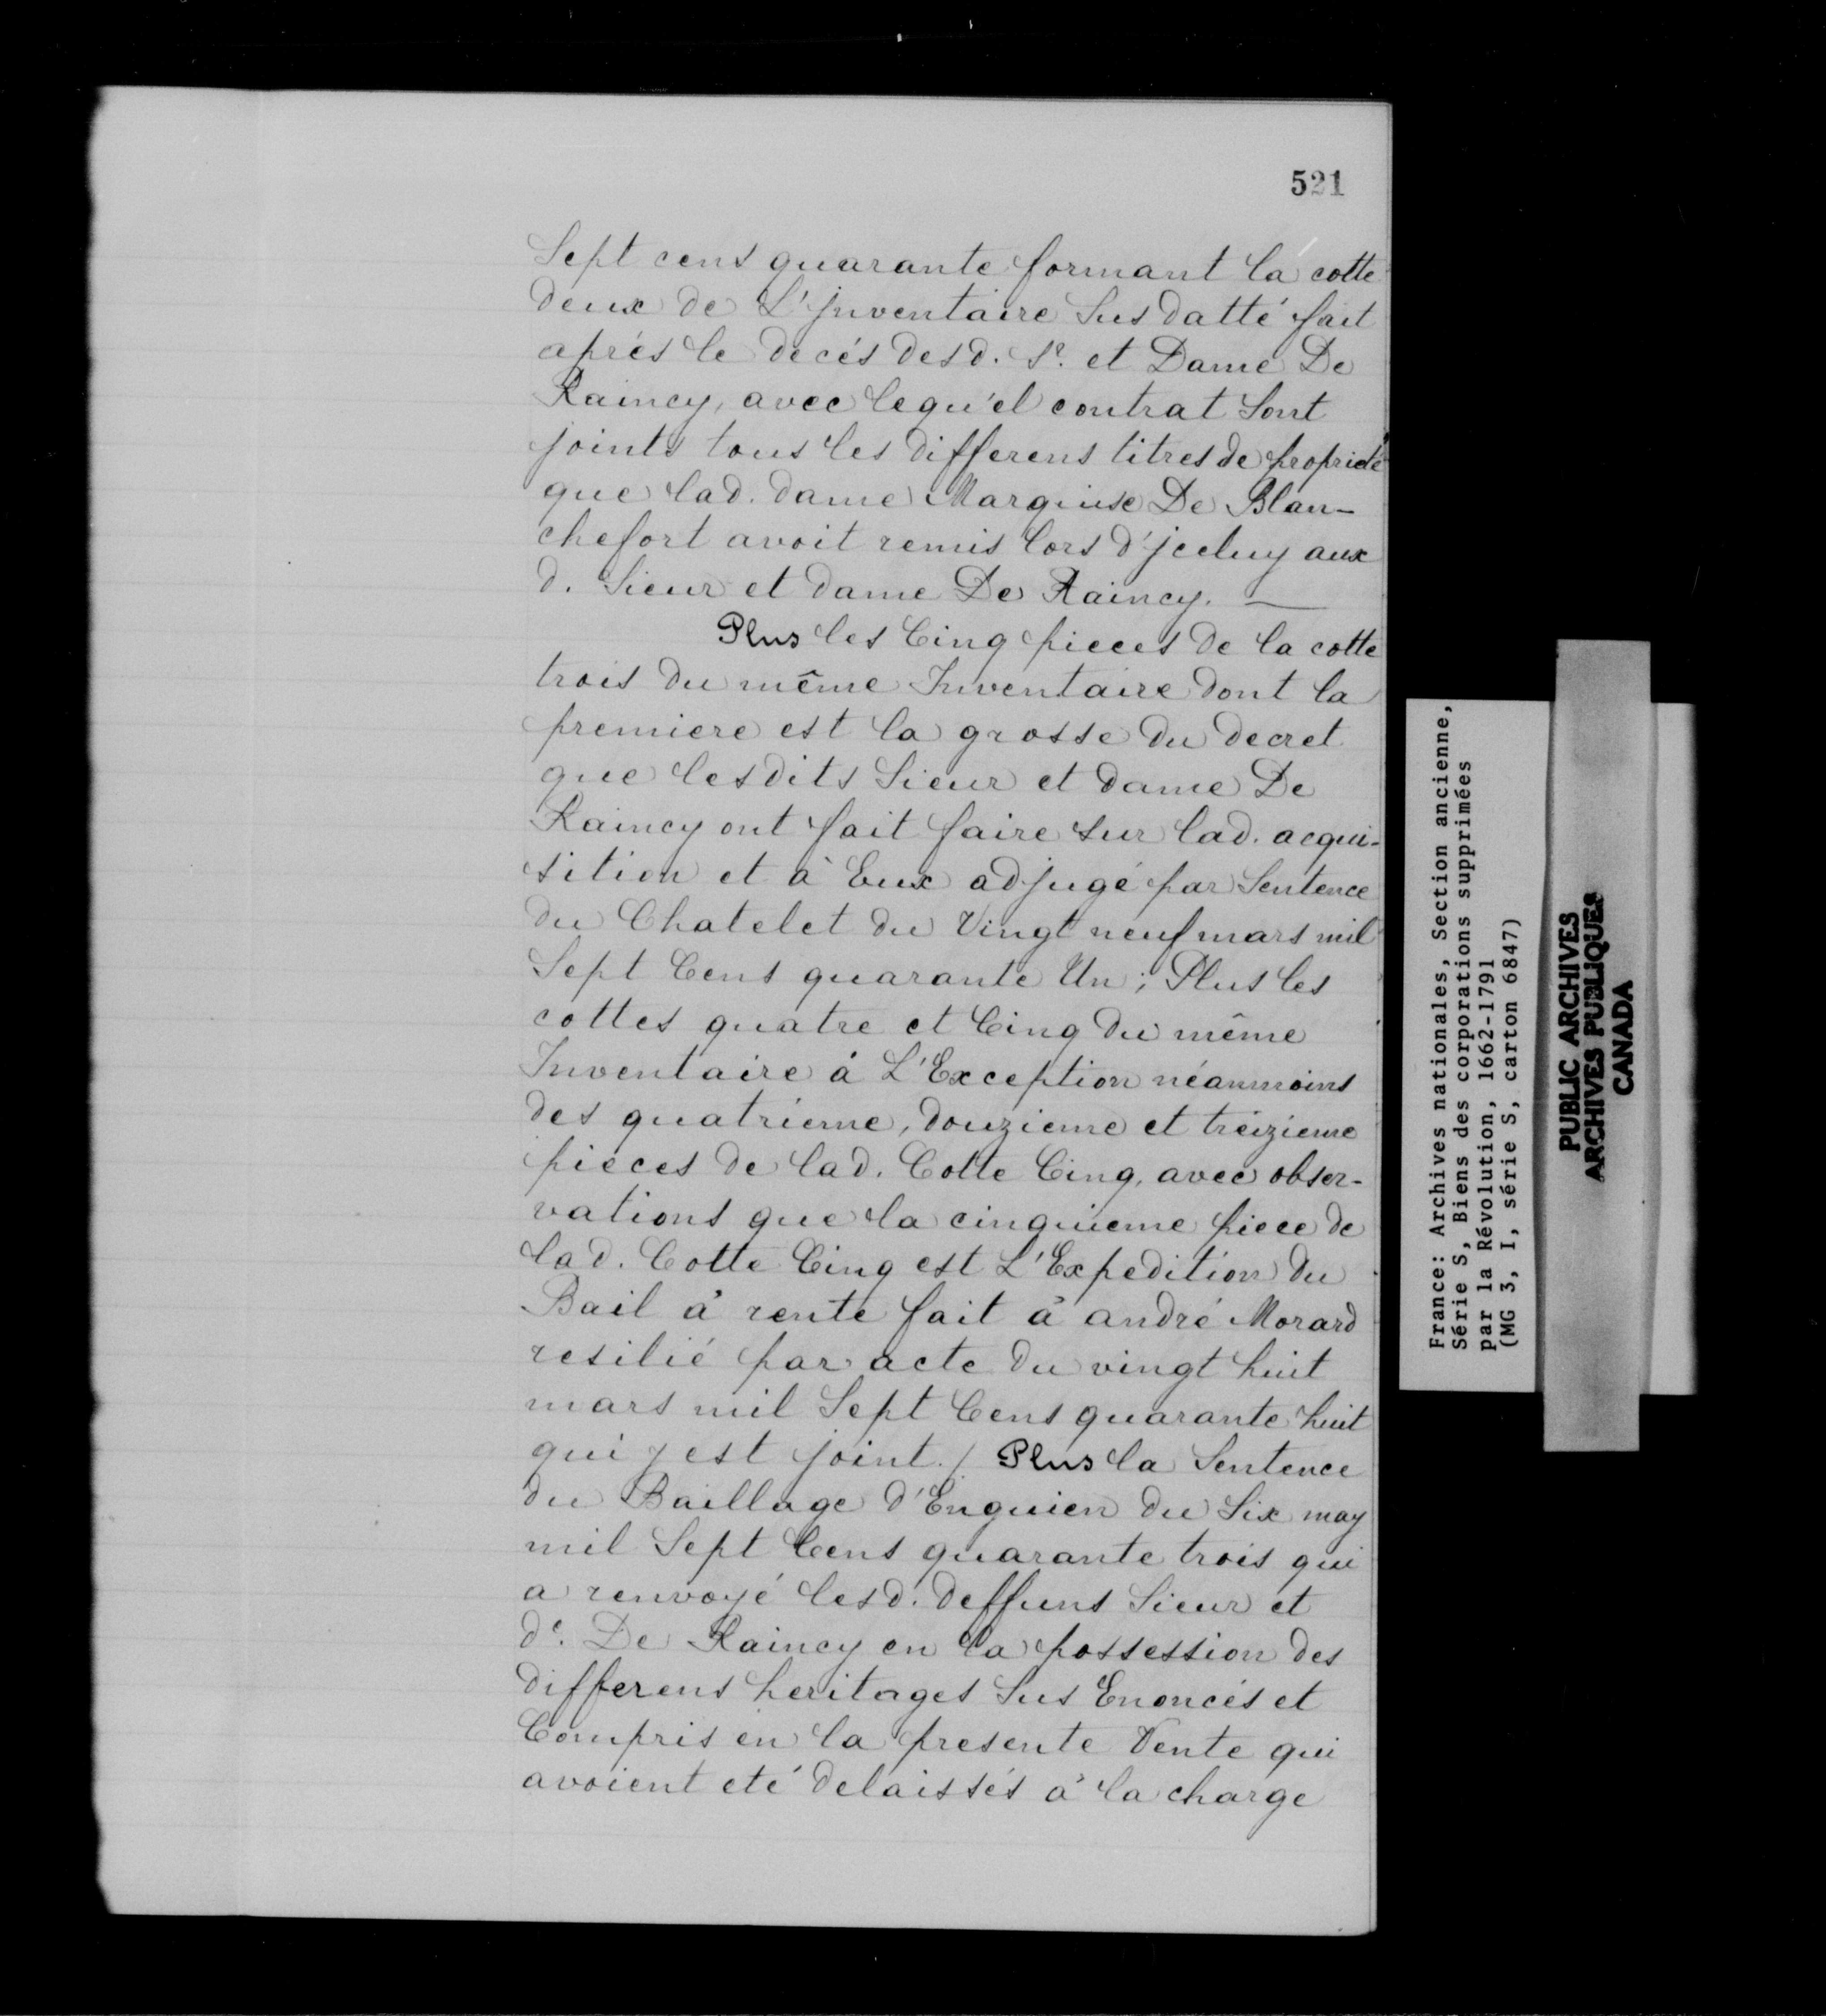 521
Sept cens quarante formant la cotte
deux de L'jnventaire Sus datté fait
aprés le decés desd. Sr. et Dame De
Raincy, avec lequ'el contrat sont
joints tous les differens titres de proprieté
que lad. dame Marquise De Blan-
chefort avoit remis lors d'jceluy aux
d. Sieur et dame De Raincy. —
Plus les Cinq pieces de la cotte
trois du même Inventaire dont la
premiere est la grosse du decret
que lesdits Sieur et dame De
Raincy ont fait faire sur lad. acqui-
sition et à Eux adjugé par Sentence
du Chatelet du Vingt neuf mars mil
Sept Cens quarante Un ; Plus les
cottes quatre et Cinq du même
Inventaire à L'Exception néanmoins
des quatrieme, douzieme et treizieme
pieces de lad. Cotte Cinq, avec obser-
vations que la cinquieme piece de
lad. Cotte Cinq est L'Expedition du
Bail à rente fait à andré Morard
resilié par acte du vingt huit
mars mil Sept Cens quarante huit
qui y est joint. / Plus la Sentence
du Baillage d'Enguien du Six may
mil Sept Cens quarante trois qui
a renvoyé lesd. deffuns Sieur et
de. De Raincy en la possession des
differens heritages Sus Enoncés et
Compris en la presente Vente qui
avoient eté delaissés à la charge
France: Archives nationales, Section ancienne,
Série S, Biens des corporations supprimées
par la Révolution, 1662-1791
(MG 3, I, série S, carton 6847)
PUBLIC ARCHIVES
ARCHIVES PUBLIQUES
CANADA